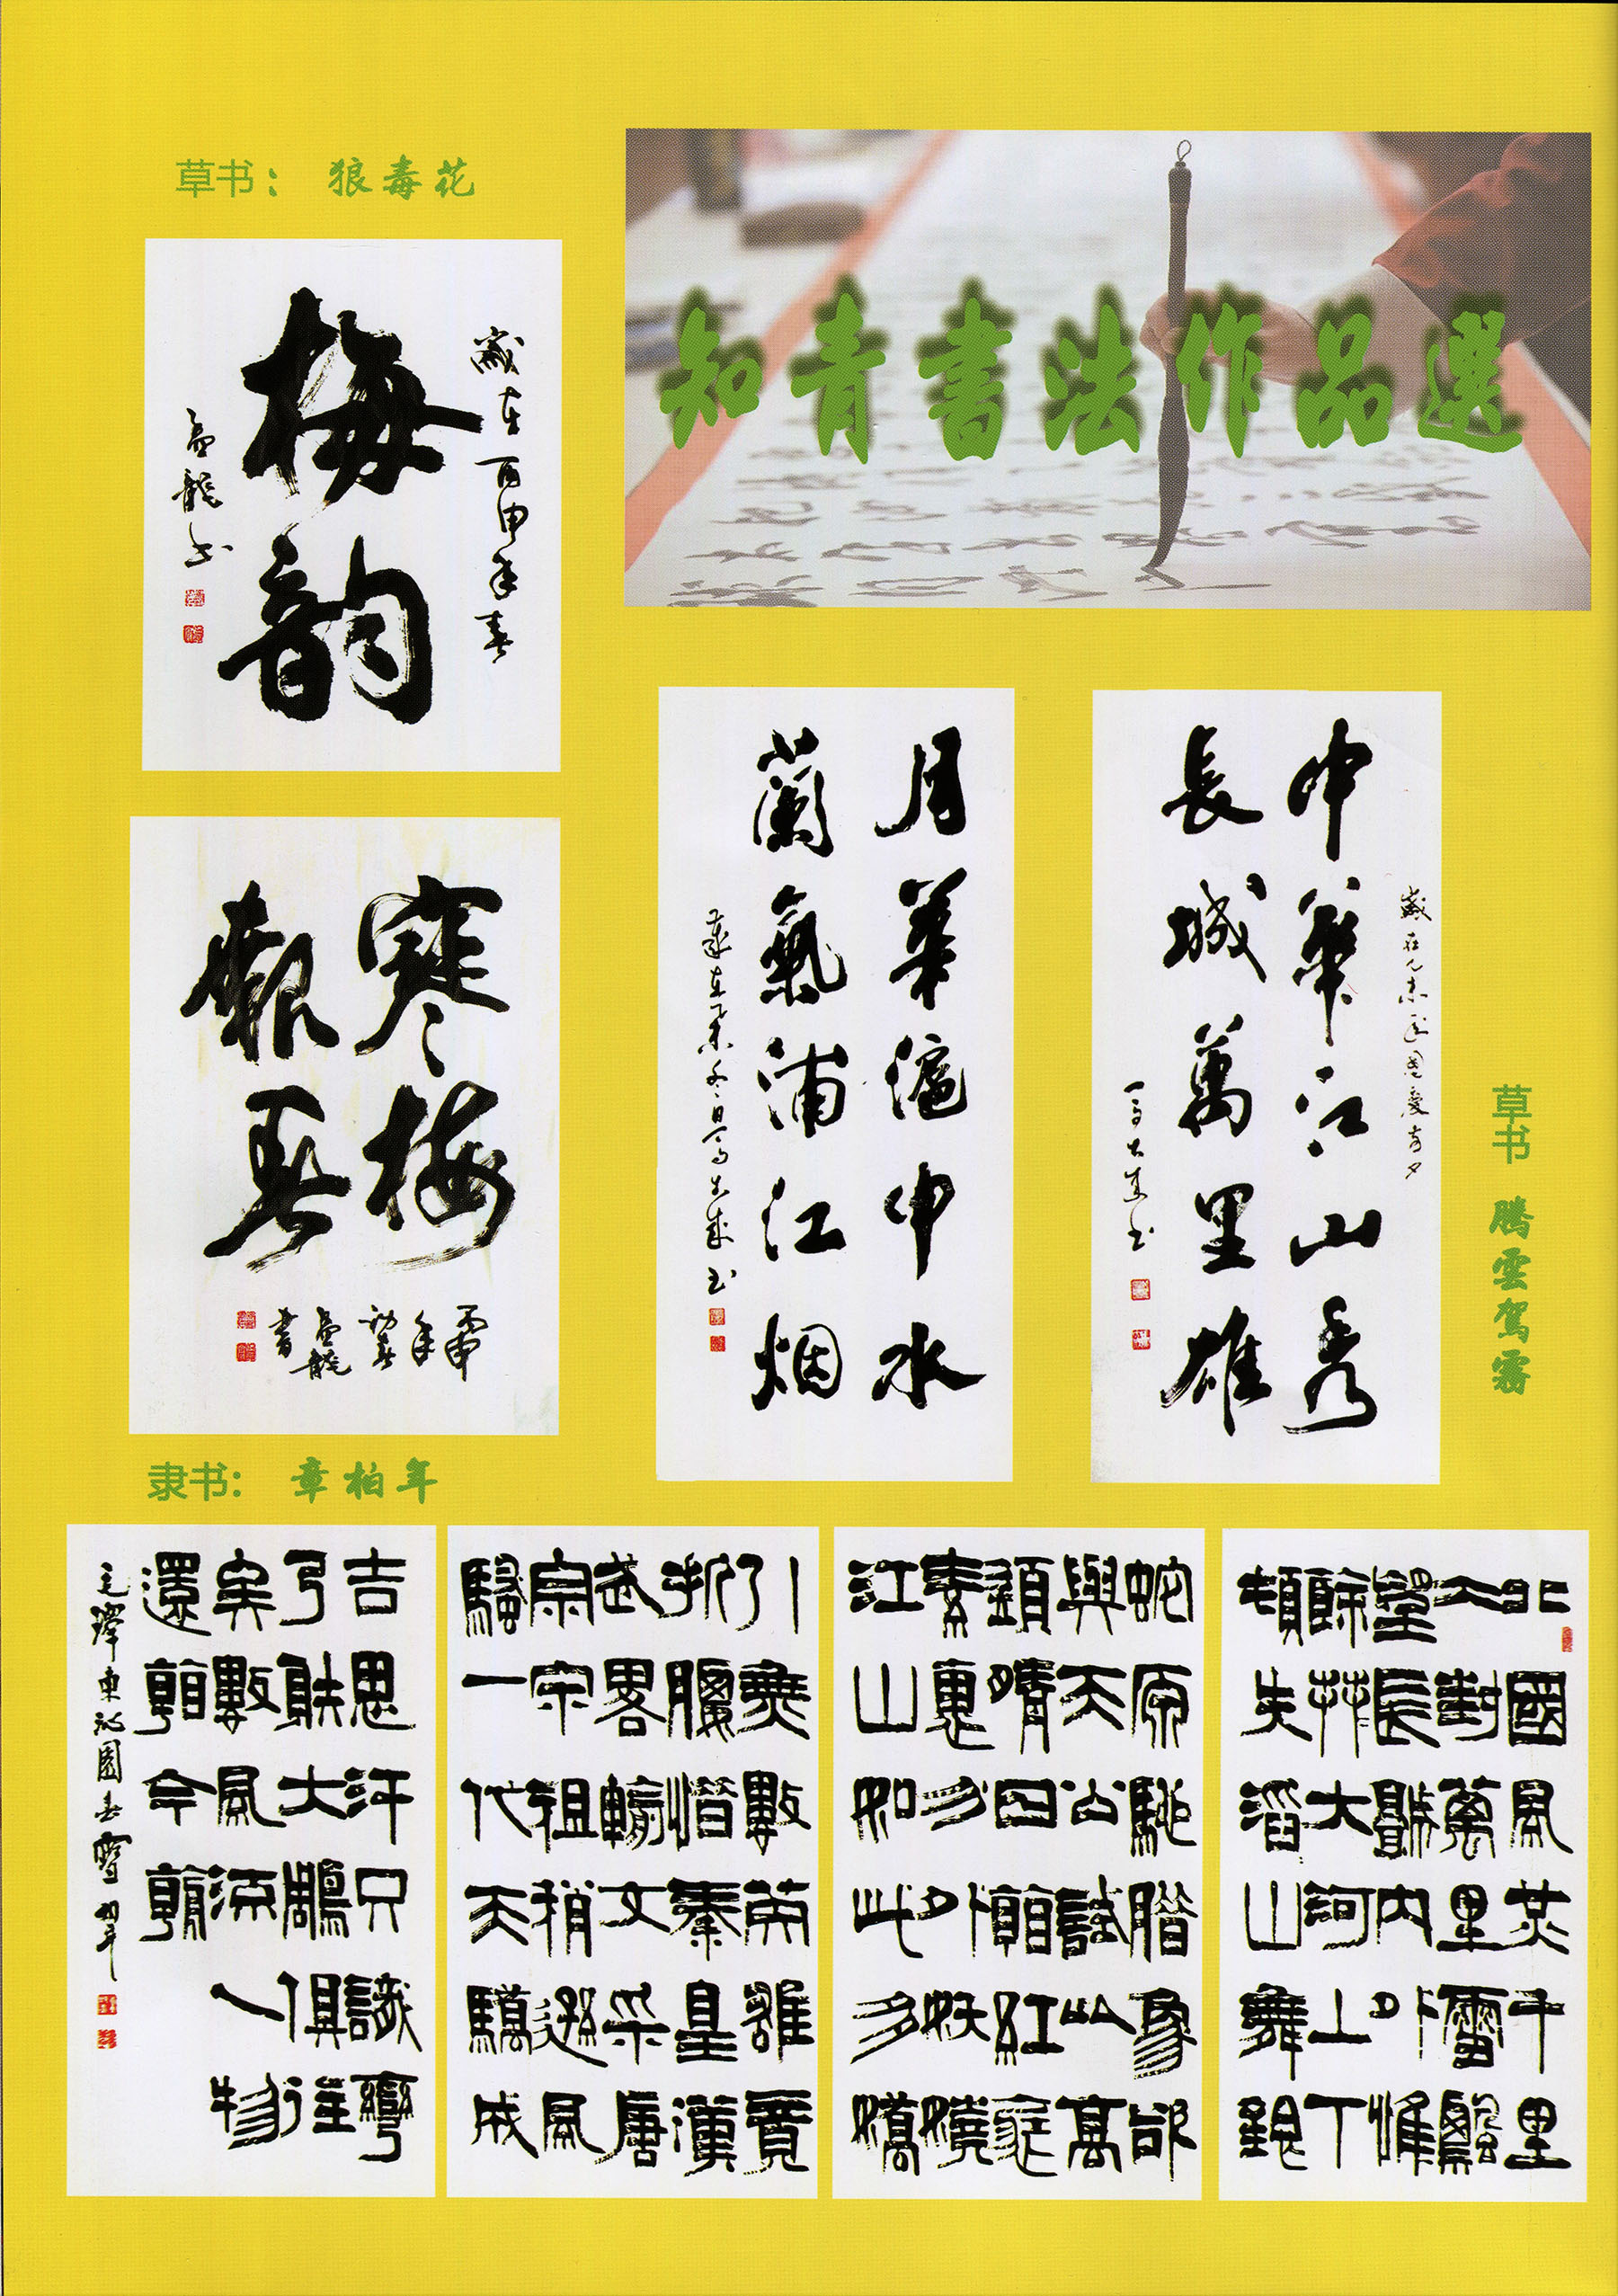 知青書法作品選
草书： 狼毒花
歲在丙申年春
梅韵
孟龍书
寒梅
報春
丙申
年
初春
孟龍
書
月華滬申水
蘭氣浦江烟
歲在乙未冬日马大成书
歲在乙未年国慶前夕
中華江山秀
長城萬里雄
马大成书
草书 騰雲駕霧
隶书： 章柏年
北國風光千里
冰封萬里雪飄
望長城內外惟
餘莽大河上下
頓失滔山舞銀
蛇原馳腊象欲
與天公試比高
須晴日看紅裝
素裹分外妖嬈
江山如此多嬌
引無數英雄競
折腰惜秦皇漢
武略輸文采唐
宗宋祖稍遜風
騷一代天驕成
吉思汗只識彎
弓射大雕俱往
矣數風流人物
還看今朝
毛澤東沁園春雪 柏年